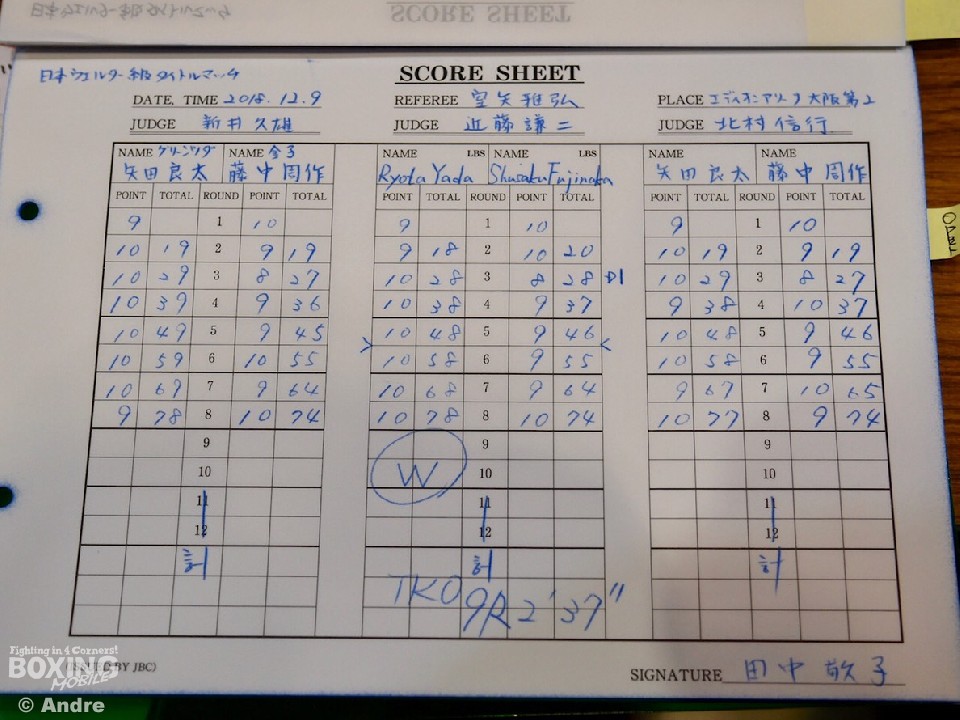 SCORE SHEET
日本ウェルター級タイトルマッチ
SCORE SHEET
DATE, TIME 2018. 12. 9 REFEREE 室矢雅弘 PLACE エディオンアリーナ大阪第2
JUDGE 新井久雄 JUDGE 近藤謙二 JUDGE 北村信行
NAME グリーンツダ NAME 金子 NAME LBS NAME LBS NAME NAME
矢田良太 藤中周作 Ryota Yada Shusaku Fujinaka 矢田良太 藤中周作
POINT TOTAL ROUND POINT TOTAL POINT TOTAL ROUND POINT TOTAL POINT TOTAL ROUND POINT TOTAL
9 1 10 9 1 10 9 1 10
10 19 2 9 19 9 18 2 10 20 10 19 2 9 19
10 29 3 8 27 10 28 3 8 28 D1 10 29 3 8 27
10 39 4 9 36 10 38 4 9 37 9 38 4 10 37
10 49 5 9 45 10 48 5 9 46 10 48 5 9 46
> 10 59 6 10 55 10 58 6 9 55 < 10 58 6 9 55
10 69 7 9 64 10 68 7 9 64 9 67 7 10 65
9 78 8 10 74 10 78 8 10 74 10 77 8 9 74
9 9 9
10 W 10 10
11 11 11
12 12 12
計 計 計
TKO 9R 2'37"
(ISSUED BY JBC)
SIGNATURE 田中
Fighting in 4 Corners!
BOXING
MOBILE
© Andre